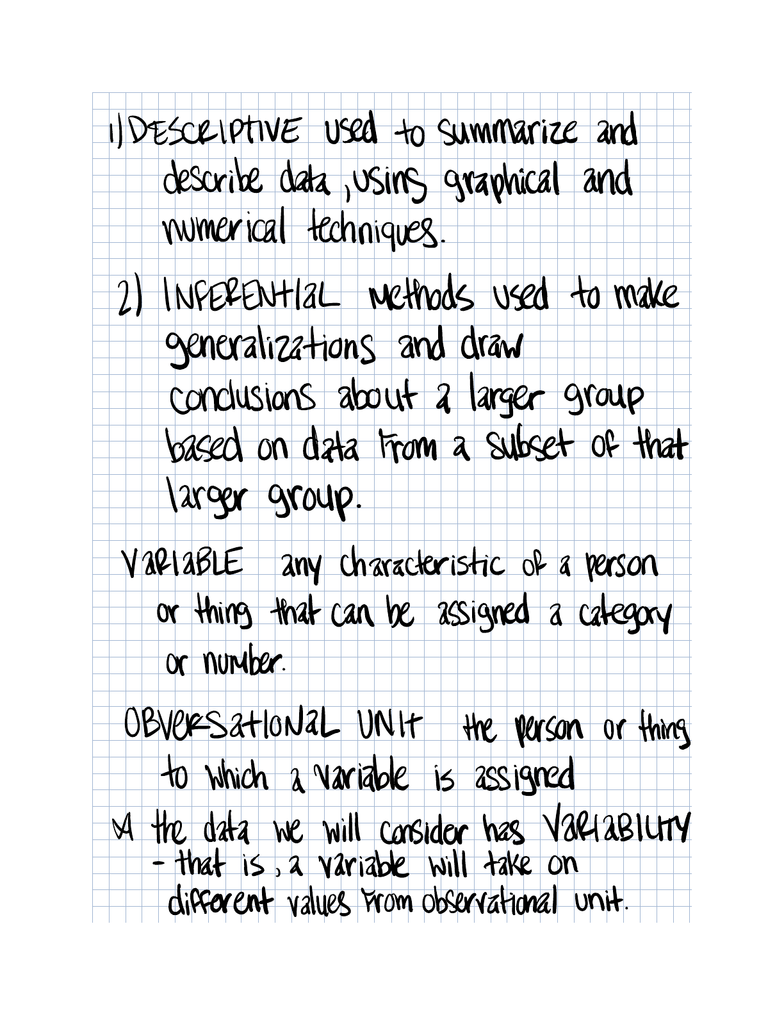 1) DESCRIPTIVE used to summarize and
describe data, using graphical and
numerical techniques.
2) INFERENTIAL methods used to make
generalizations and draw
conclusions about a larger group
based on data from a subset of that
larger group.
VARIABLE any characteristic of a person
or thing that can be assigned a category
or number.
OBVERSATIONAL UNIT the person or thing
to which a variable is assigned
the data we will consider has VARIABILITY
- that is, a variable will take on
different values from observational unit.